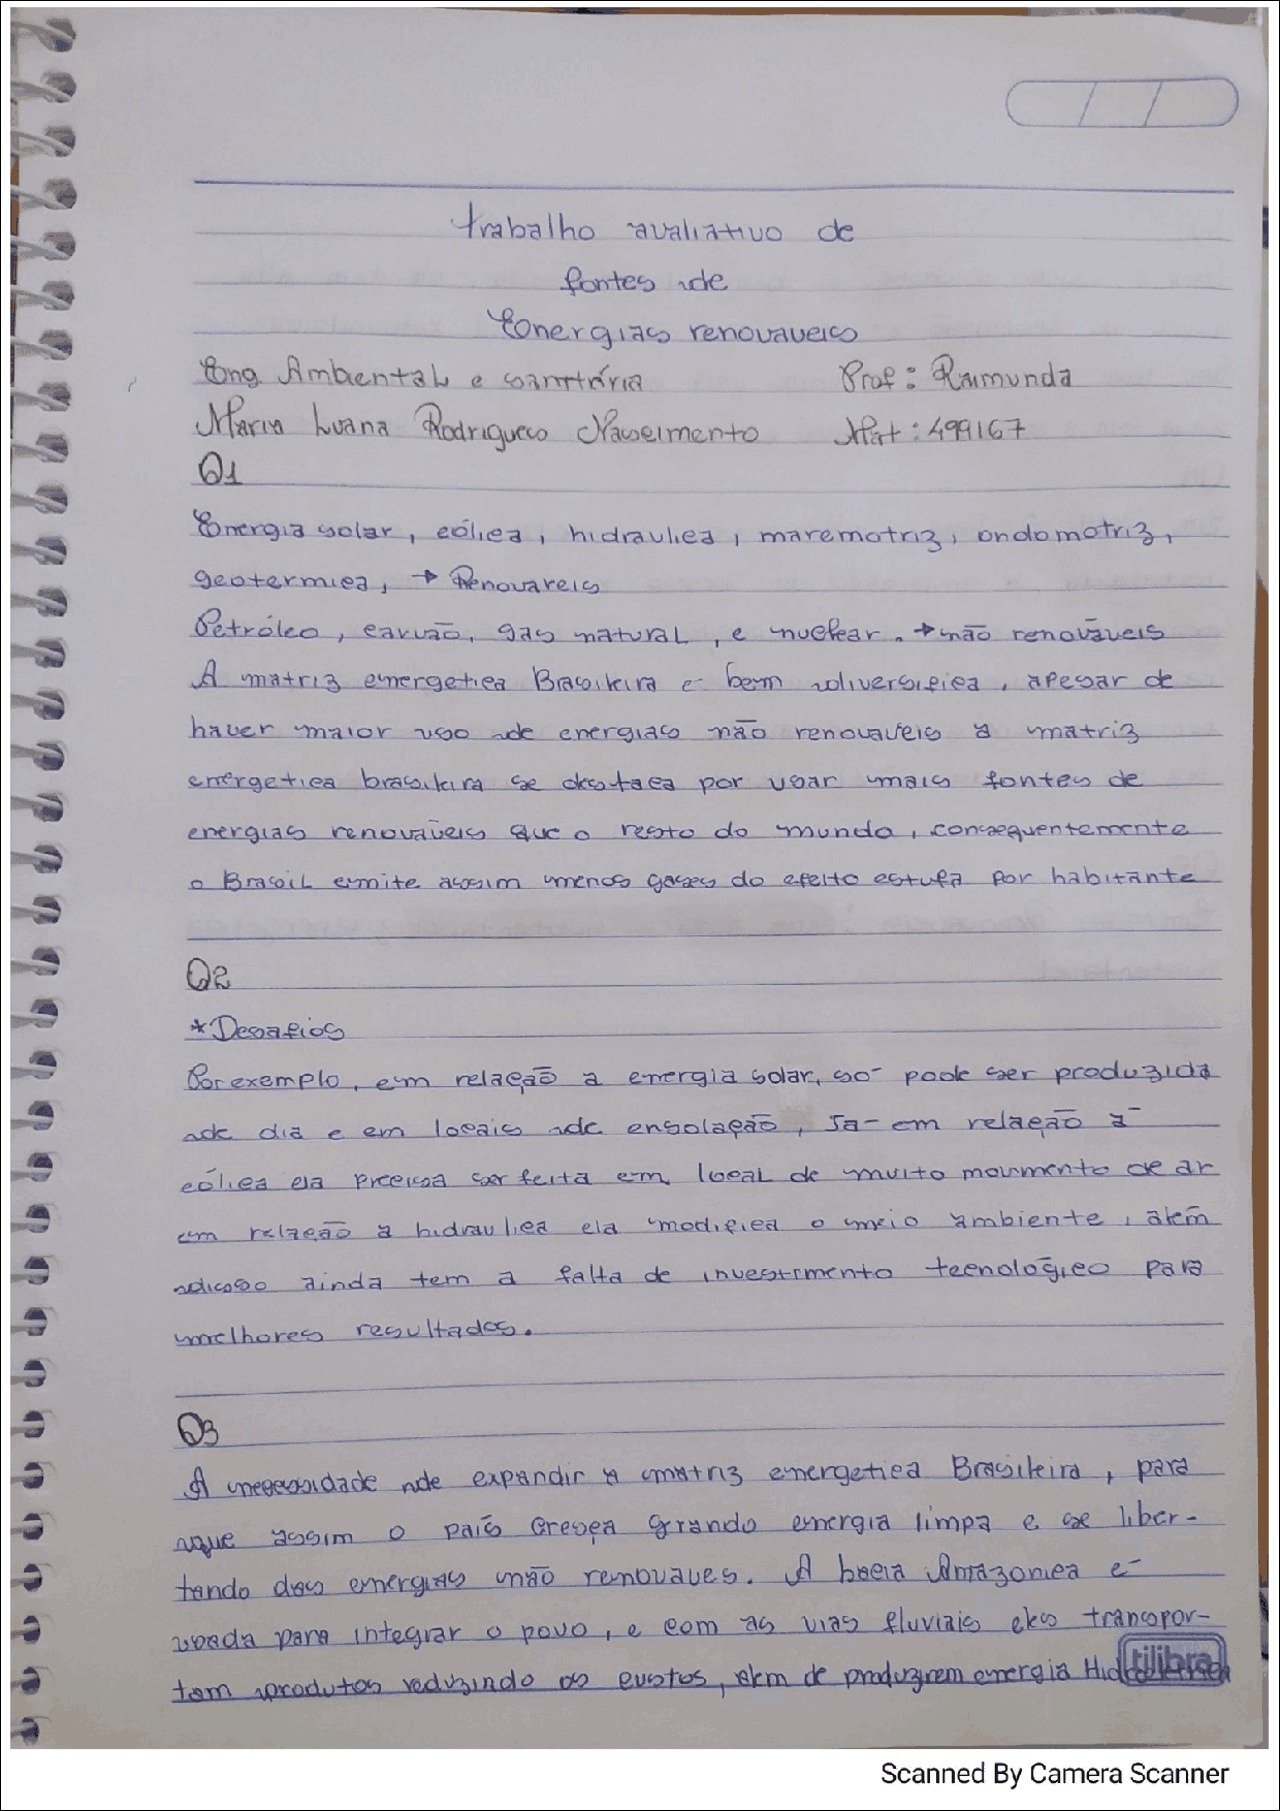 Trabalho avaliativo de
fontes de
Energias renovaveis
Eng. Ambiental e sanitária Prof: Raimunda
Maria Luana Rodrigues Nascimento Mat: 499167
Q1
Energia solar, eólica, hidraulica, maremotriz, ondomotriz,
geotermica, → Renovaveis
Petróleo, carvão, gas natural, e nuclear. → não renováveis
A matriz energetica Brasileira é bem diversifica, apesar de
haver maior uso de energias não renovaveis a matriz
energetica brasileira se destaca por usar mais fontes de
energias renováveis que o resto do mundo, consequentemente
o Brasil emite assim menos gases do efeito estufa por habitante
Q2
*Desafios
Por exemplo, em relação a energia solar, só pode ser produzida
de dia e em locais de ensolação, Já em relação á
eólica ela precisa ser feita em local de muito movimento de ar
em relação a hidraulica ela modifica o meio ambiente, além
disso ainda tem a falta de investimento tecnológico para
melhores resultados.
Q3
A necessidade de expandir a matriz energetica Brasileira, para
que assim o país cresça gerando energia limpa e se liber-
tando das energias não renovaves. A bacia Amazonica é
usada para integrar o povo, e com as vias fluviais eles transpor-
tam produtos reduzindo os custos, alem de produzirem energia
tilibra
Scanned By Camera Scanner